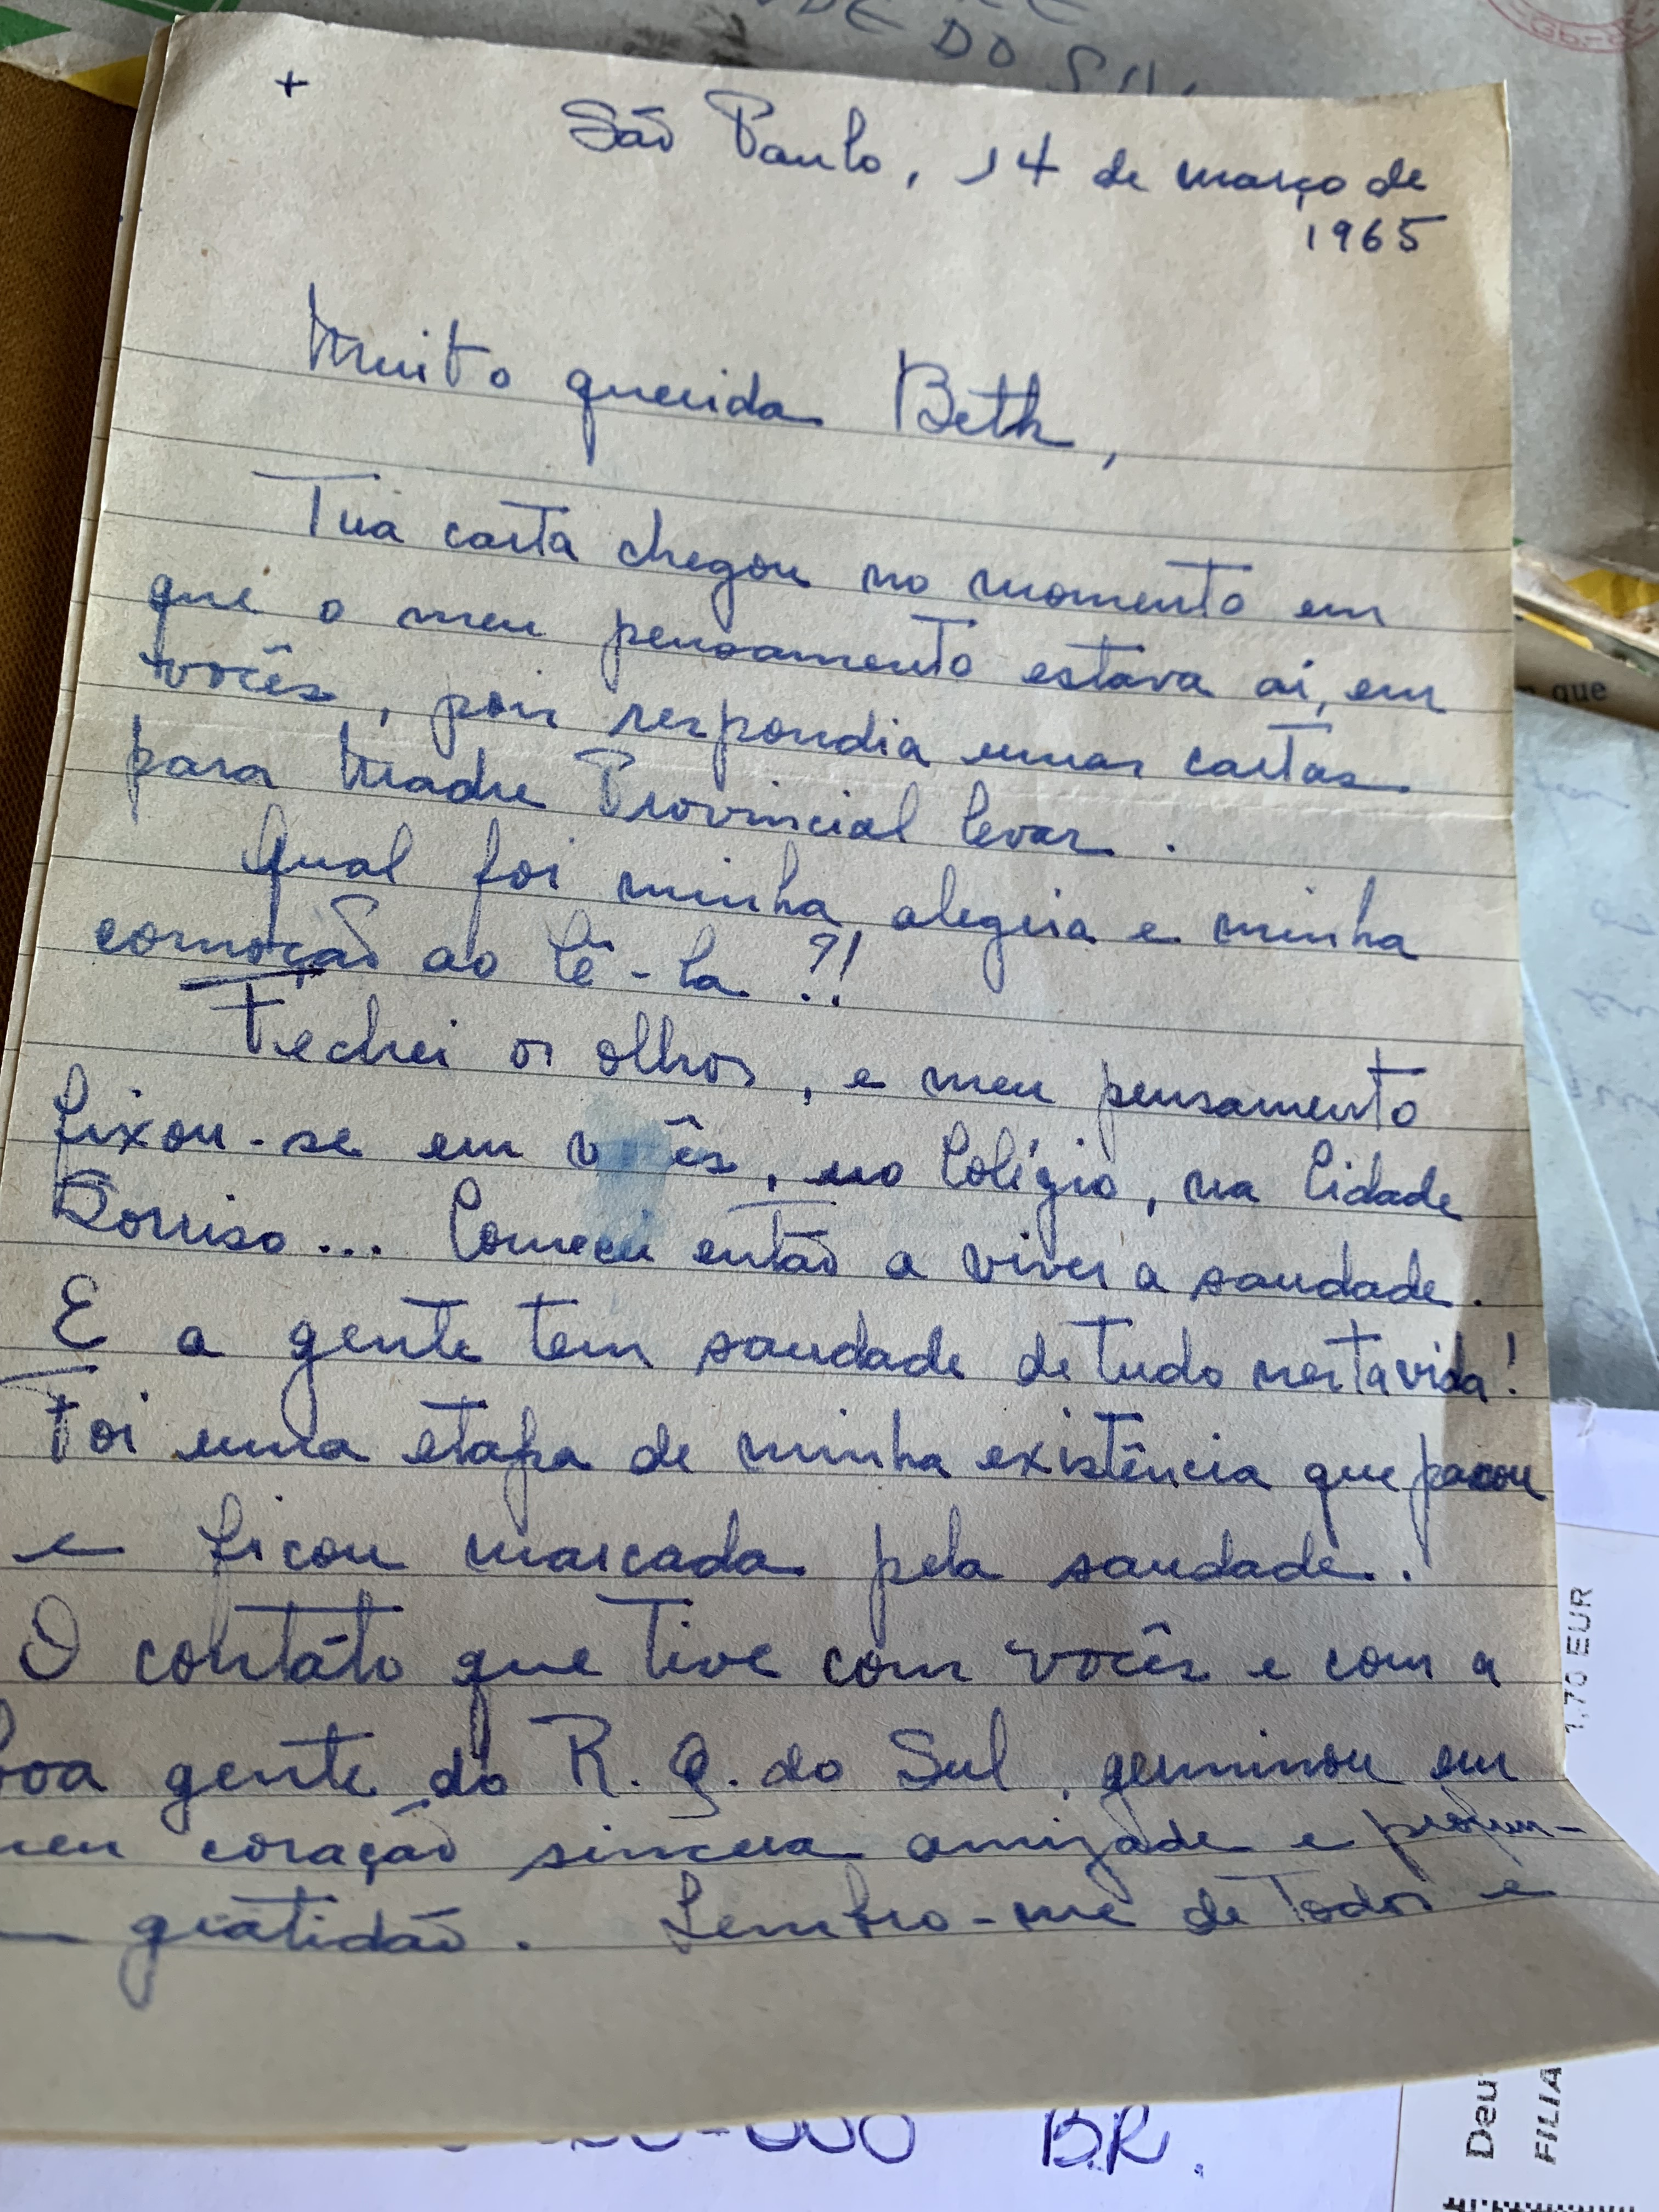 DE DO
+
São Paulo, 14 de março de
1965
Muito querida Beth,
Tua carta chegou no momento em
que o meu pensamento estava aí, em
vocês, pois respondia umas cartas
para Madre Provincial levar.
Qual foi minha alegria e minha
comoção ao lê-la?!
Fechei os olhos, e meu pensamento
fixou-se em vocês, no Colégio, na Cidade
Sorriso... Comecei então a viver a saudade.
E a gente tem saudade de tudo nesta vida!
Foi uma etapa de minha existência que passou
e ficou marcada pela saudade.
O contáto que tive com vocês e com a
boa gente do R. G. do Sul, germinou em
meu coração sincera amizade e profun-
gratidão. Lembro-me de todos e
que
1,70 EUR
Deu
FILIA
000 B.R.